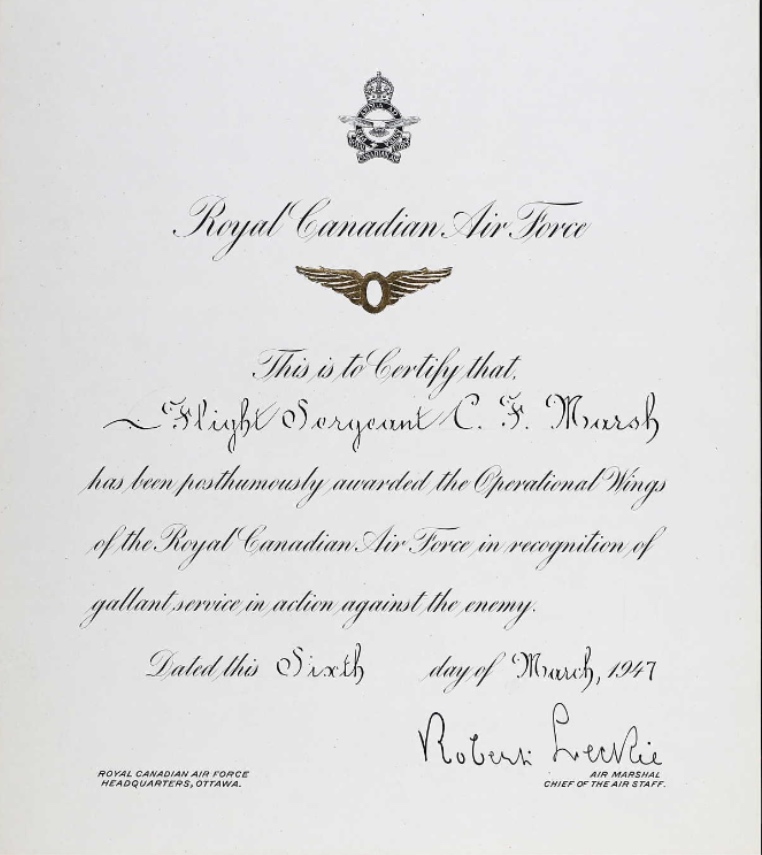 Royal Canadian Air Force
This is to Certify that,
Flight Sergeant C. F. Marsh
has been posthumously awarded the Operational Wings
of the Royal Canadian Air Force in recognition of
gallant service in action against the enemy.
Dated this Sixth day of March, 1947
Robert Leckie
ROYAL CANADIAN AIR FORCE
HEADQUARTERS, OTTAWA.
AIR MARSHAL
CHIEF OF THE AIR STAFF.